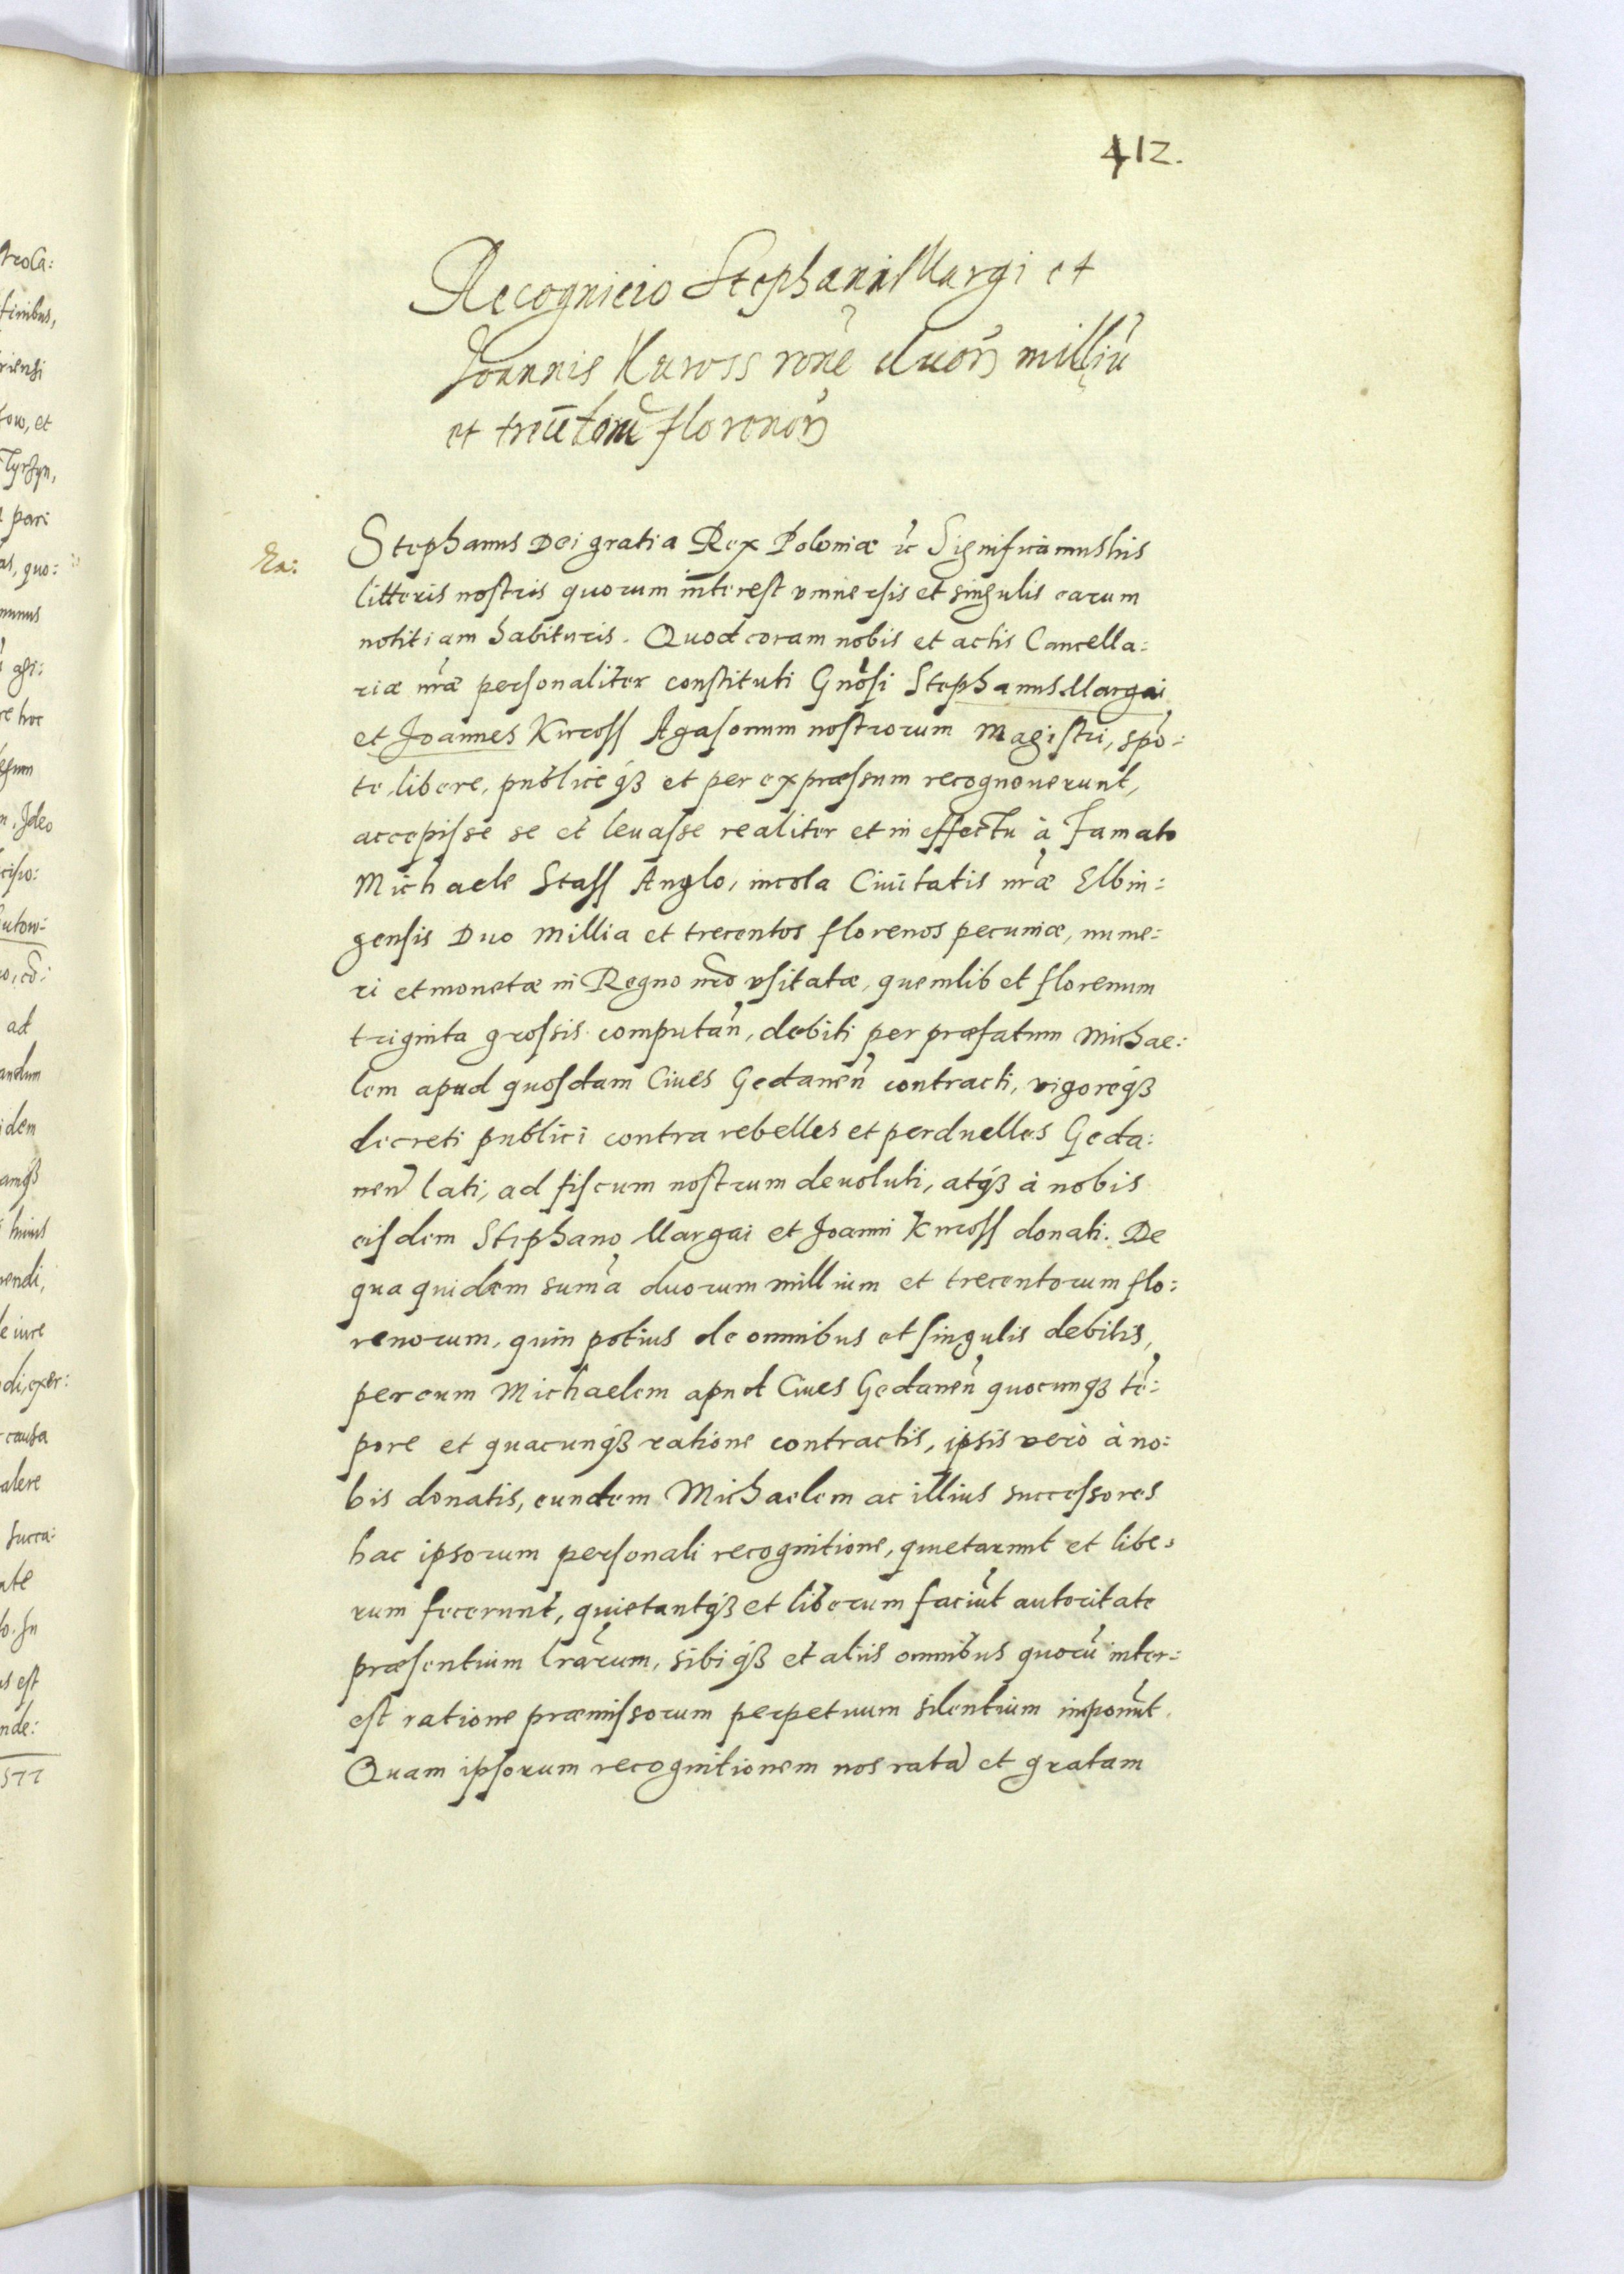 412.
Recognicio Stephani Margi et
Joannis Kuross rõne duor̃ milliũ
et trecẽtorũ florenor̃
Stephanus Dei gratia Rex Poloniæ &c Significamus his
litteris nostris quorum interest vniuersis et singulis earum
notitiam habituris. Quod coram nobis et actis Cancella:
riæ nr̃æ personaliter constituti Gnõsi Stephanus Margai
et Joannes Kuross Agasonum nostrorum Magistri, spõ:
te, libere, publiceq3 et per expræssum recognouerunt,
accepisse se et leuasse realiter et in effectu à Famato
Michaele Stass Anglo, incola Ciuitatis nr̃æ Elbin:
gensis Duo millia et trecentos florenos pecuniæ, nume:
ri et monetæ in Regno nr̃o vsitatæ, quemlibet florenum
triginta grossis computañ, debiti per præfatum Michae:
lem apud quosdam Ciues Gedaneñ contracti, vigoreq3
decreti publici contra rebelles et perduelles Geda:
neñ lati, ad fiscum nostrum deuoluti, atq3 à nobis
eisdem Stephano Margai et Joanni Kuross donati. De
qua quidem sum̃a duorum millium et trecentorum flo:
renorum, quin potius de omnibus et singulis debitis,
per eum Michaelem apud Ciues Gedaneñ quocunq3 tẽ:
pore et quacunq3 ratione contractis, ipsis verò à no:
bis donatis, eundem Michaelem ac illius successores
hac ipsorum personali recognitione, quietarunt et libe:
rum fecerunt, quietantq3 et liberum faciũt autoritate
præsentium lr̃arum, sibiq3 et aliis omnibus quorũ inter:
est ratione præmissorum perpetuum silentium imponũt.
Quam ipsorum recognitionem nos ratã et gratam